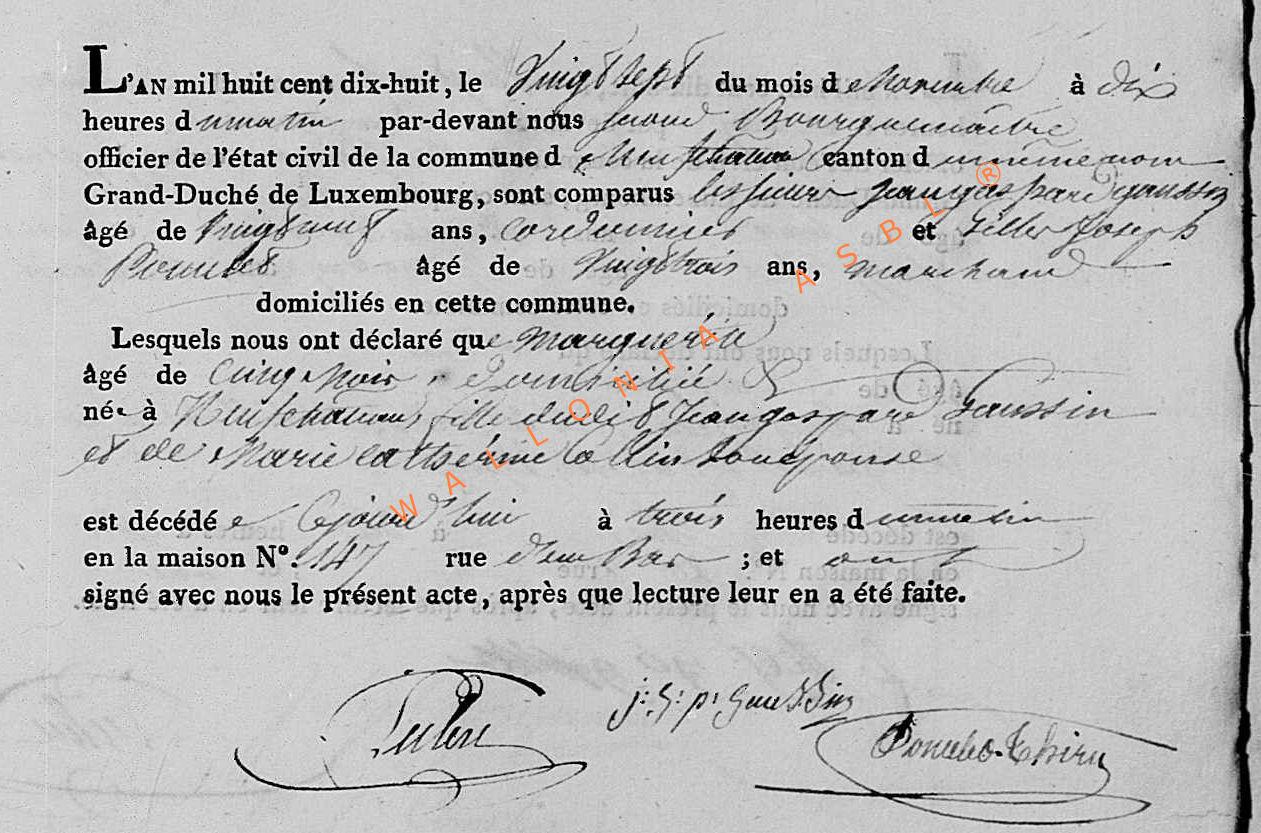 L'AN mil huit cent dix-huit, le vingt sept du mois de Novembre à dix
heures du matin par-devant nous second Bourguemaître
officier de l'état civil de la commune de Neufchateau canton du même nom
Grand-Duché de Luxembourg, sont comparus les sieurs Jean gaspard gaussin
âgé de vingt neuf ans, cordonnier et Joseph
âgé de vingt trois ans, marchand
domiciliés en cette commune.
Lesquels nous ont déclaré que Marguerite
âgé de cinq Mois domiciliée &
née à Neufchateau, fille dudit Jean gaspard Gaussin
et de Marie catherine Collin son épouse
est décédée cejourd'hui à trois heures du matin
en la maison N°. 147 rue ; et ont
signé avec nous le présent acte, après que lecture leur en a été faite.
j: G: p: Gaussin
Poncelet-Thiry
WALLONIA ASBL ®